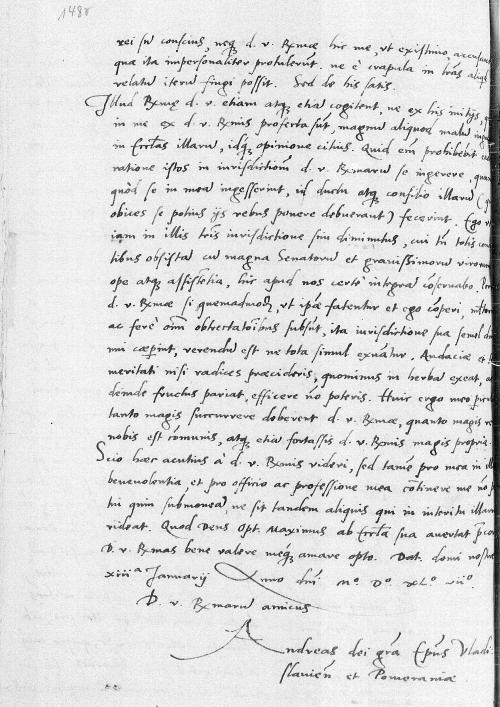 1488
rei sū conscius, neq; d. v. Rxmæ hic me, vt existimo,
quæ ita impersonaliter protulerūt. ne è crapula in trās
relatū iterū fingi possit. Sed de his satis.
Illud Rxmæ d. v. etiam atq; etiā cogitent, ne ex his initijs,
in me ex d. v. Rxmis profecta sūt, magnū aliquod malū
in Ecctias illarū, idq; opinione citius. Quid em prohibebit
ratione istos in iurisdictionē d. v. Rxmarū se ingerere,
quòd se in mea ingesserint, id ductu atq; consilio illarū
obices se potius ijs rebus ponere debuerant) fecerint. Ego
iam in illis trīs iurisdictione sim diminutus, cui tn totis
tibus obsisto cū magna Senatorū et grauissimorū virorum
ope atq; assistētia, hic apud nos certe integrā cōseruabo.
d. v. Rxmæ si quemadmodū, vt ipæ fatentur et ego cōperi,
ac ferè oīm obtrectatoībus subsūt, ita iurisdictione sua semel
mi cæperint, verendū est ne tota simul exuātur. Audaciæ et
meritati nisi radices præcideris, quominus in herbā exeat,
deinde fructus pariat, efficere nō poteris. Huic ergo meo
tanto magis succurrere deberent d. v. Rxmæ, quanto magis
nobis est cōmunis, atq; etiā fortassis d. v. Rxmis magis proprie.
Scio hæc acutius à d. v. Rxmis videri, sed tamē pro mea in
beneuolentia, et pro officio ac professione mea cōtinere me nō
tui quin submoneā, ne sit tandem aliquis qui in interitu
rideat. Quod Deus Opt. Maximus ab Ecctia sua auertat
D. v. Rxmas bene valere meq; amare opto. Dat. domi
xiiiᵃ Januarij Anno dnī Mº. Dº. xLº. viiº.
D. v. Rxmarū amicus
Andreas dei grā Epūs Vladi-
slauieñ et Pomeraniæ